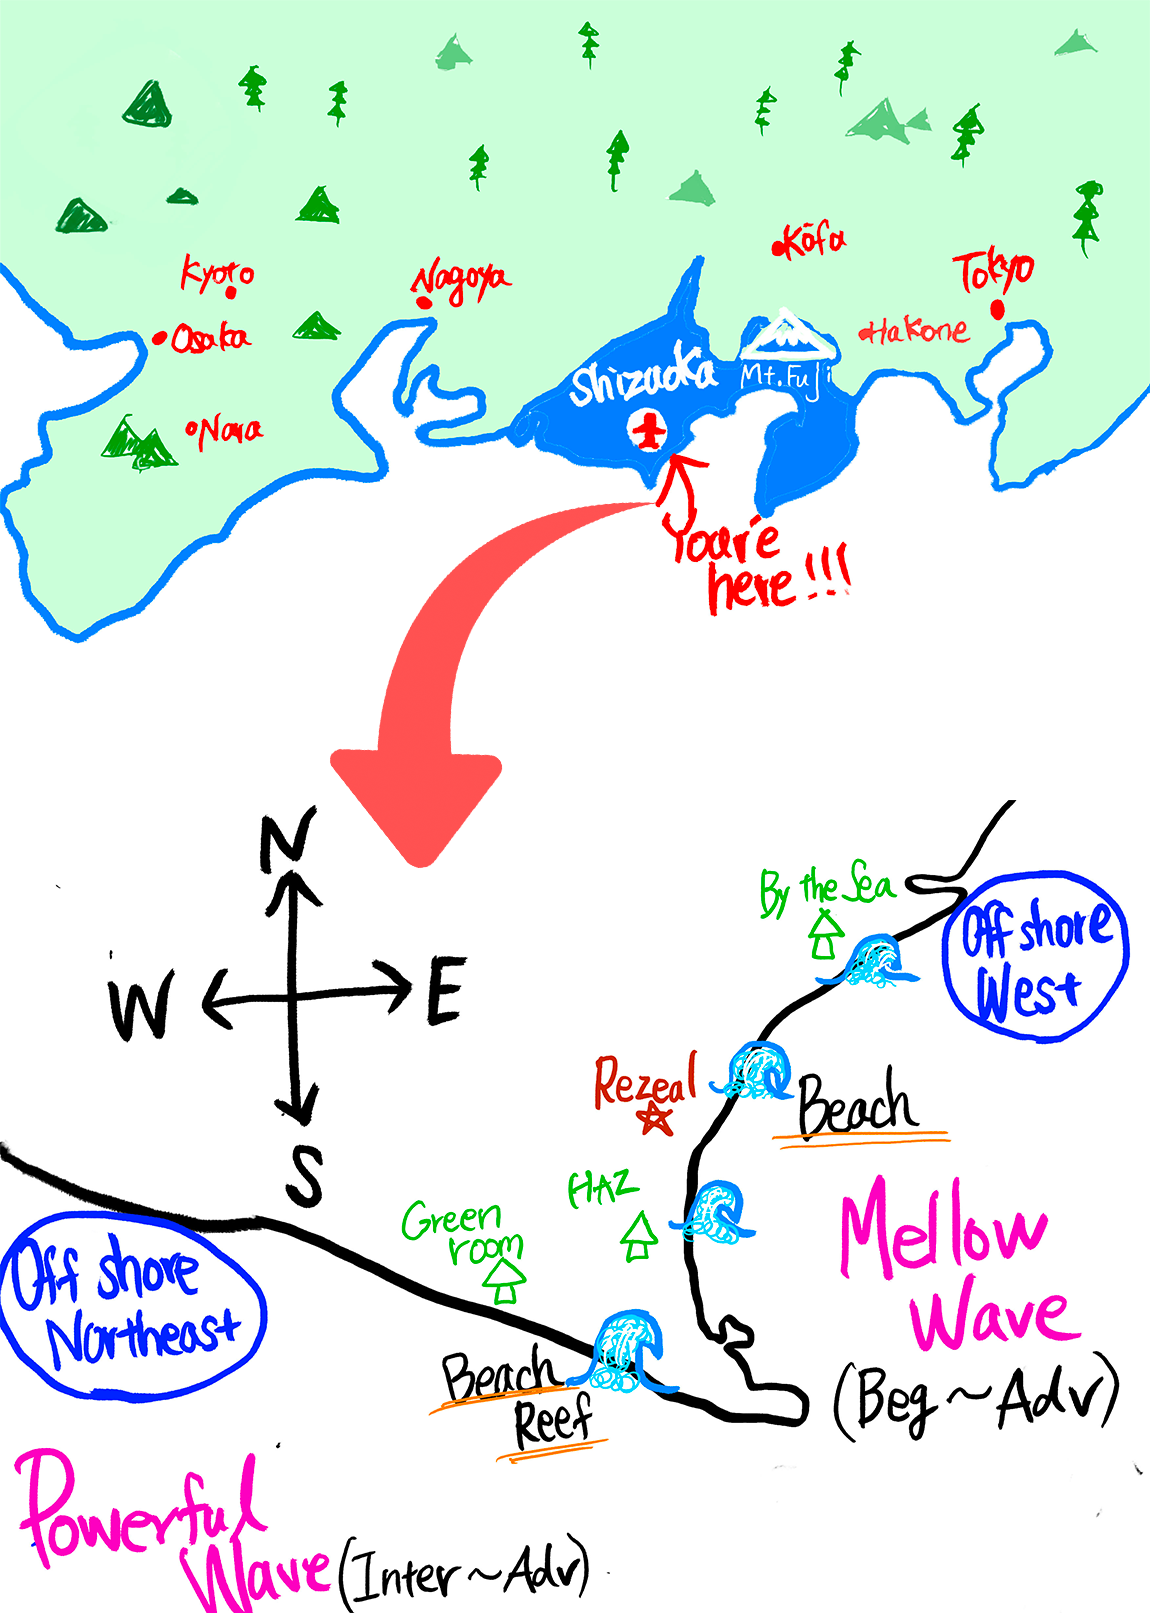 Kyoto
Osaka
Nara
Nagoya
Shizaoka
Mt. Fuji
Kōfa
Hakone
Tokyo
Your'e
here!!!
N
W
E
S
By the Sea
Off shore
West
Rezeal
Beach
HAZ
Green
room
Mellow
Wave
(Beg ~ Adv)
Off shore
Northeast
Beach
Reef
Powerful
Wave (Inter ~ Adv)